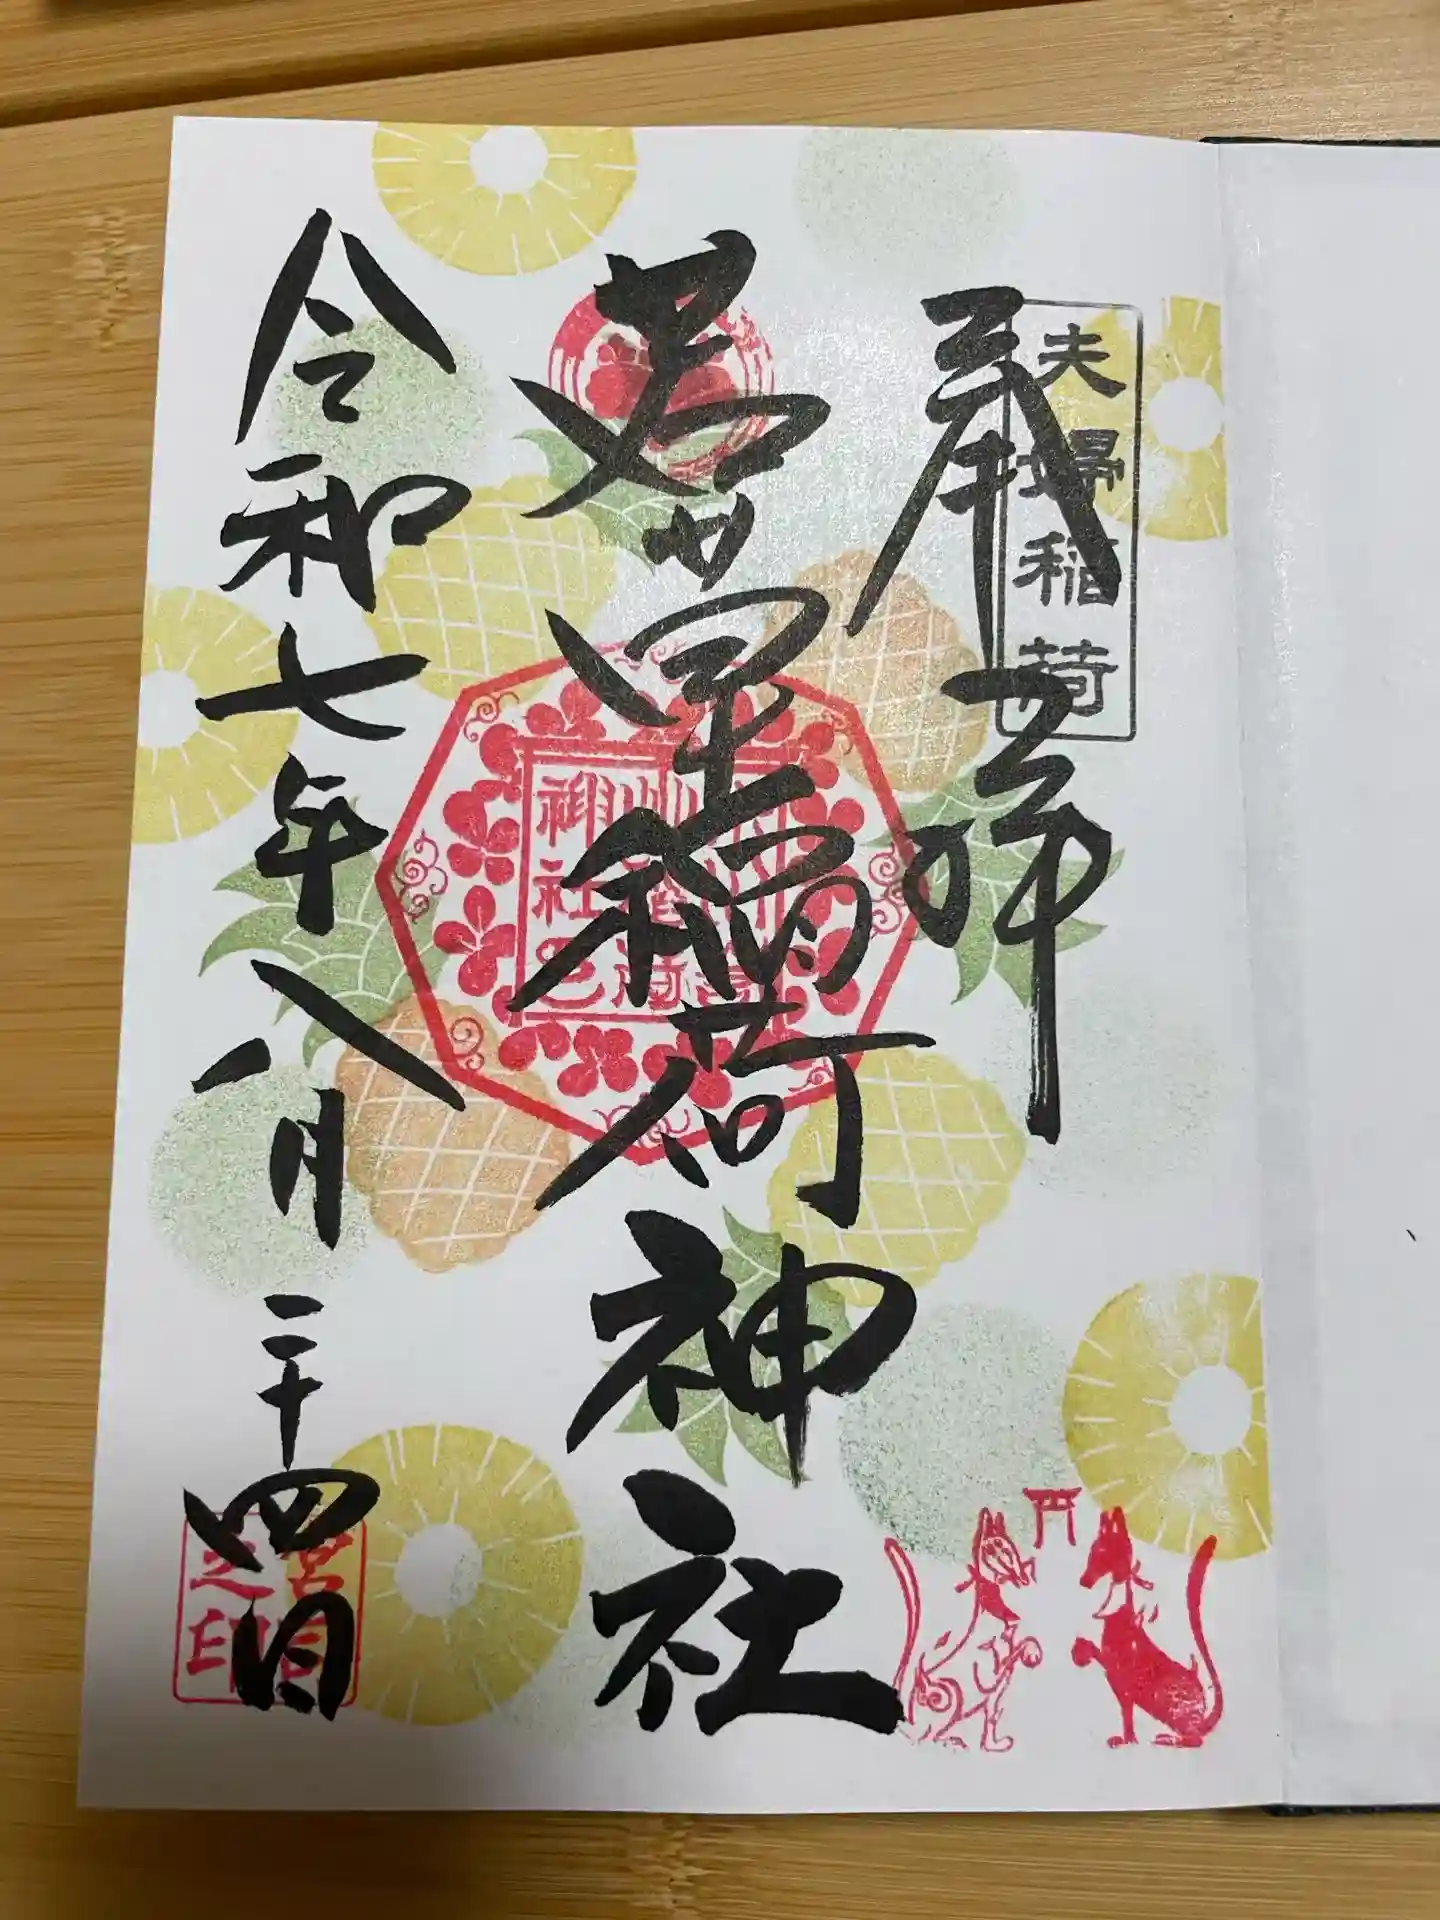 奉拝
夫婦稲荷
稲荷神社
令和七年八月二十四日
宮司之印